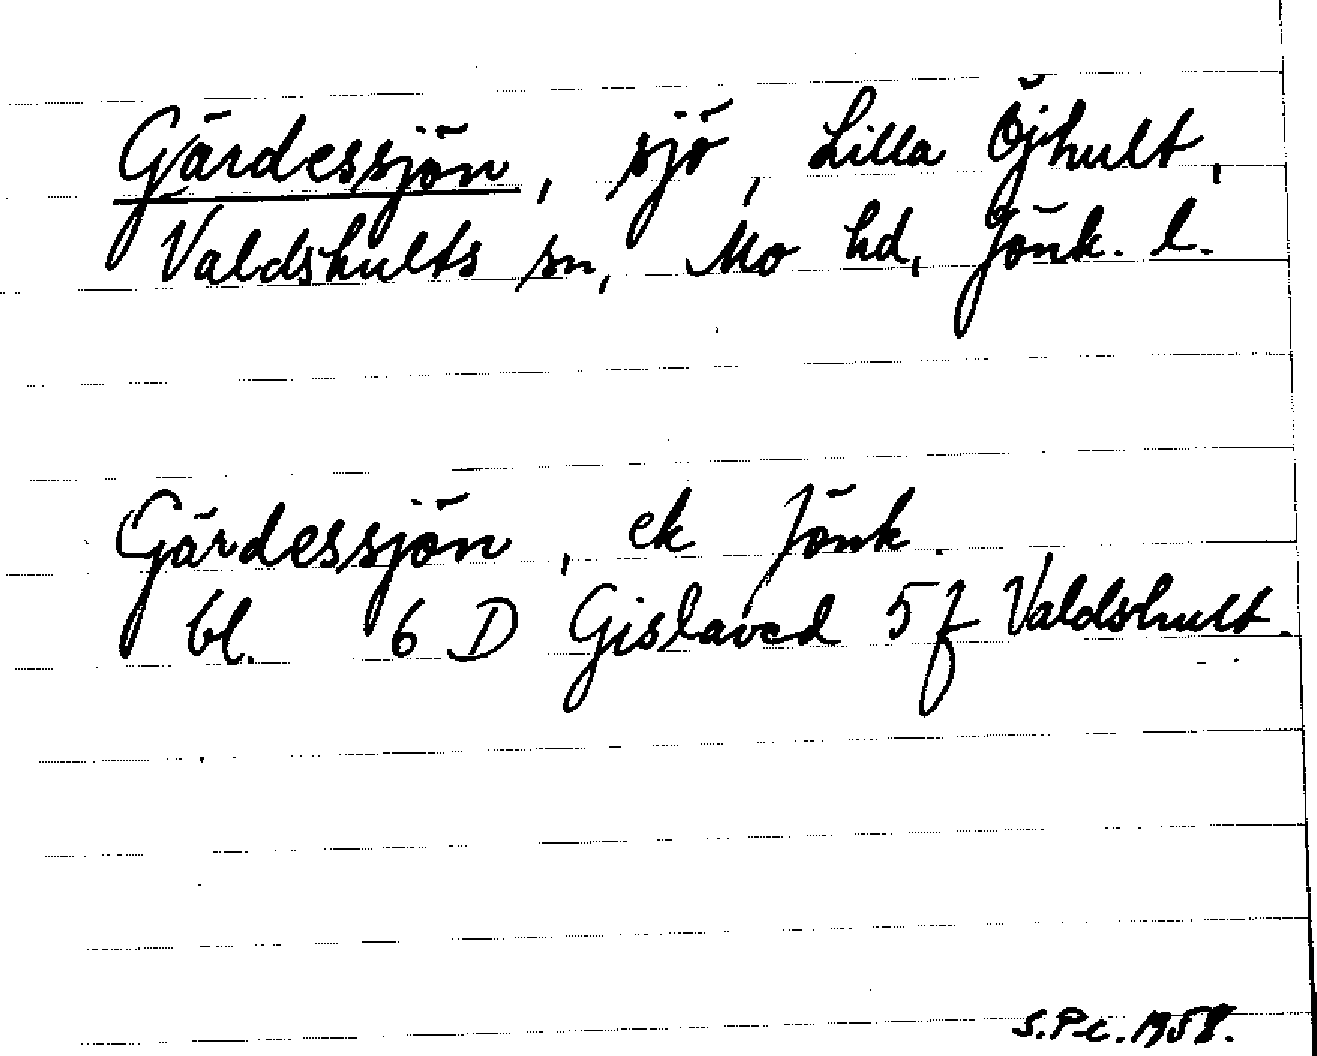 Gärdessjön, sjö, Lilla Öjhult,
Valdshults sn, Mo hd, Jönk. l.
Gärdessjön, ek Jönk.
bl. 6 D Gislaved 5 f Valdshult.
S.P-c. 1958.